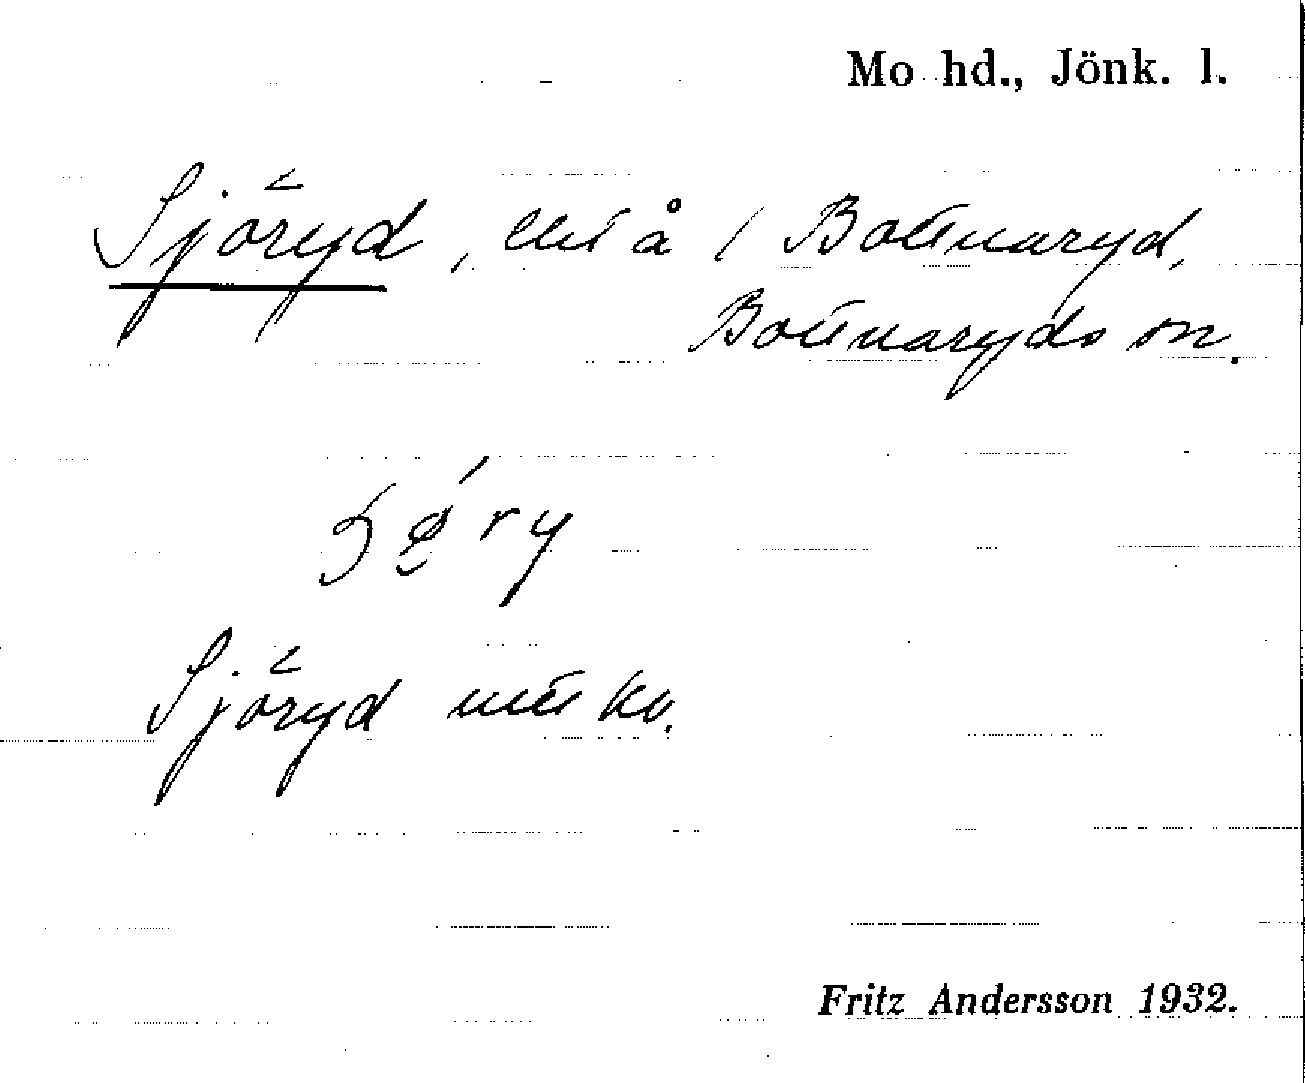 Mo hd., Jönk. l.
Sjöryd, å i Bottnaryd,
Bottnaryds sn.
ry
Sjöryd kv.
Fritz Andersson 1932.